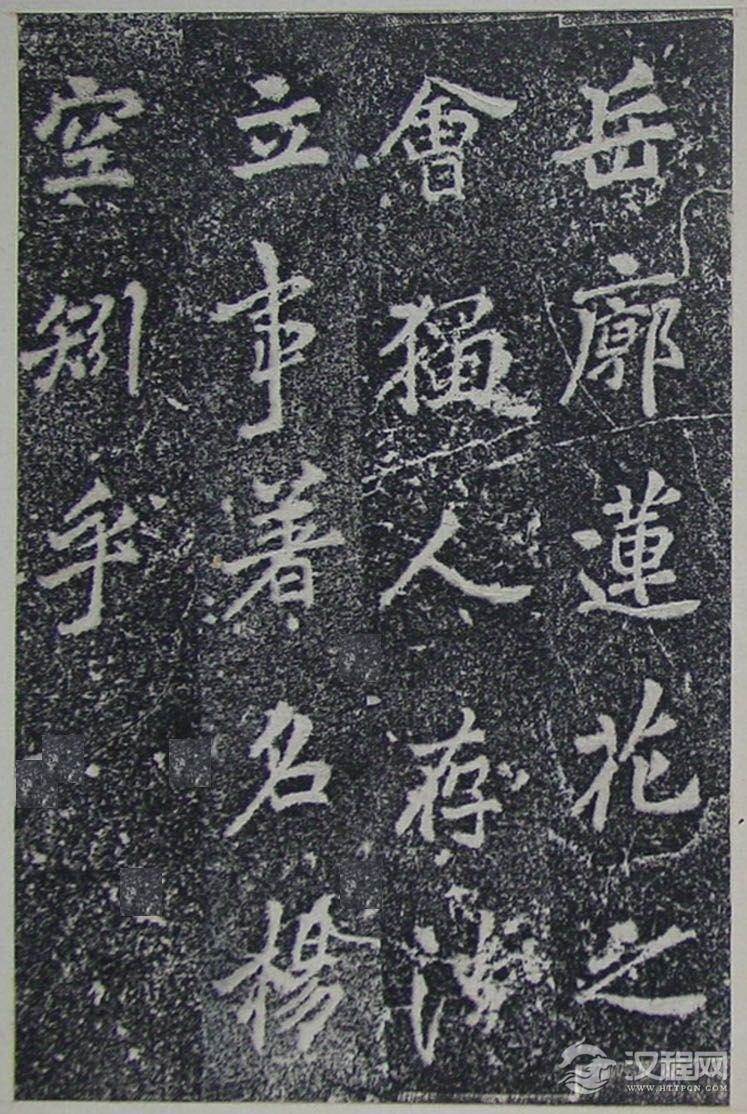 岳廓蓮花之
會人
立事著名楊
空矧乎
汉程网
WWW.HTTPCN.COM